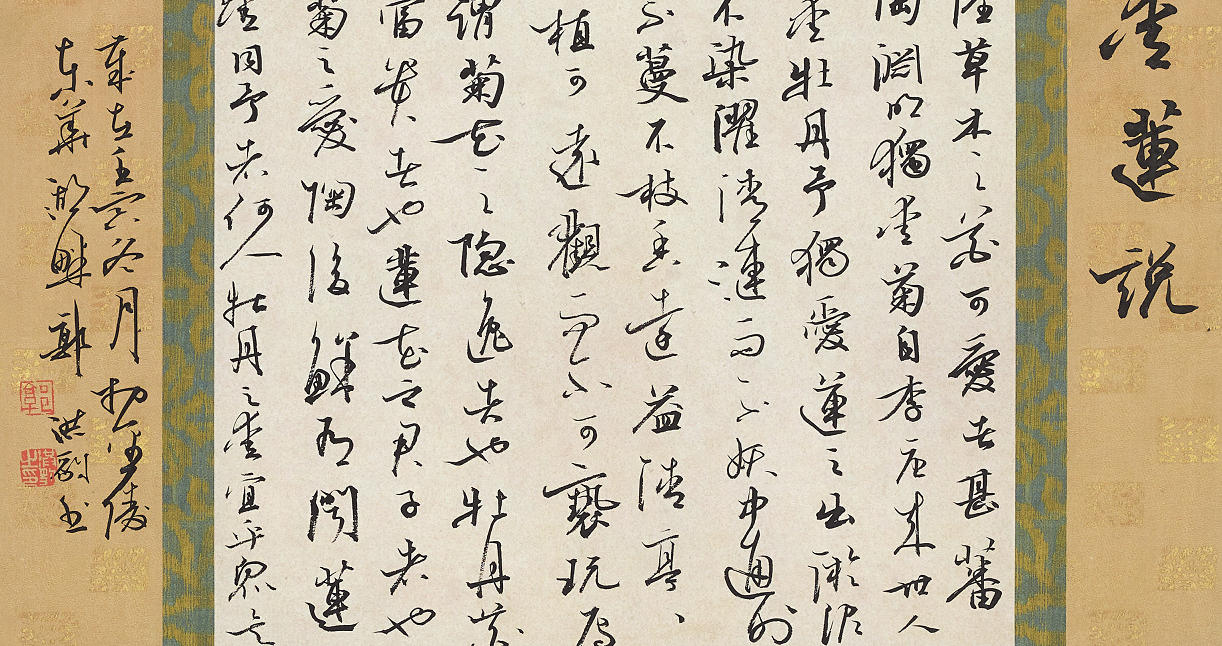 愛蓮說
陸草木之花可愛者甚蕃
陶淵明獨愛菊自李唐來世人
愛牡丹予獨愛蓮之出淤泥
不染濯清漣而不妖中通外
不蔓不枝香遠益清亭亭
植可遠觀而不可褻玩焉
謂菊花之隱逸者也牡丹花
富貴者也蓮花之君子者也
菊之愛陶後鮮有聞蓮
愛同予者何人牡丹之愛宜乎眾矣
歲在壬寅冬月於金陵
東華湖畔郭洪烈書